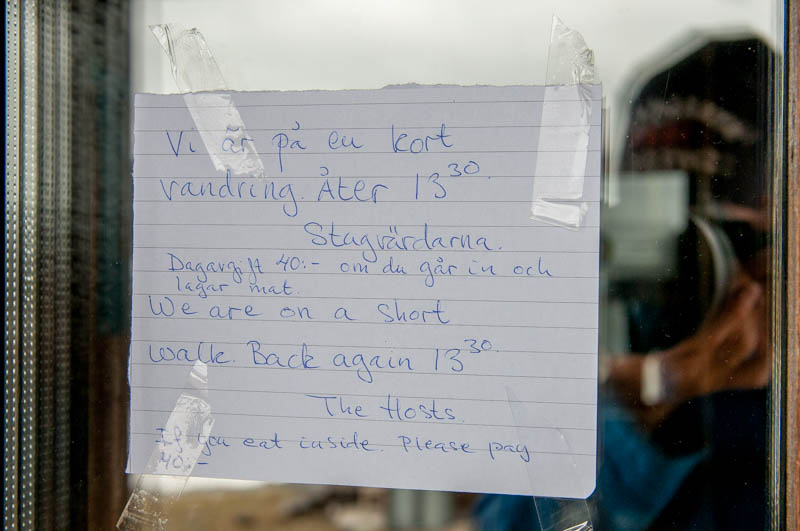 Vi är på en kort
vandring. Åter 13³⁰.
Stugvärdarna.
Dagavgift 40:- om du går in och
lagar mat.
We are on a short
walk. Back again 13³⁰.
The Hosts.
If you eat inside. Please pay
40:-